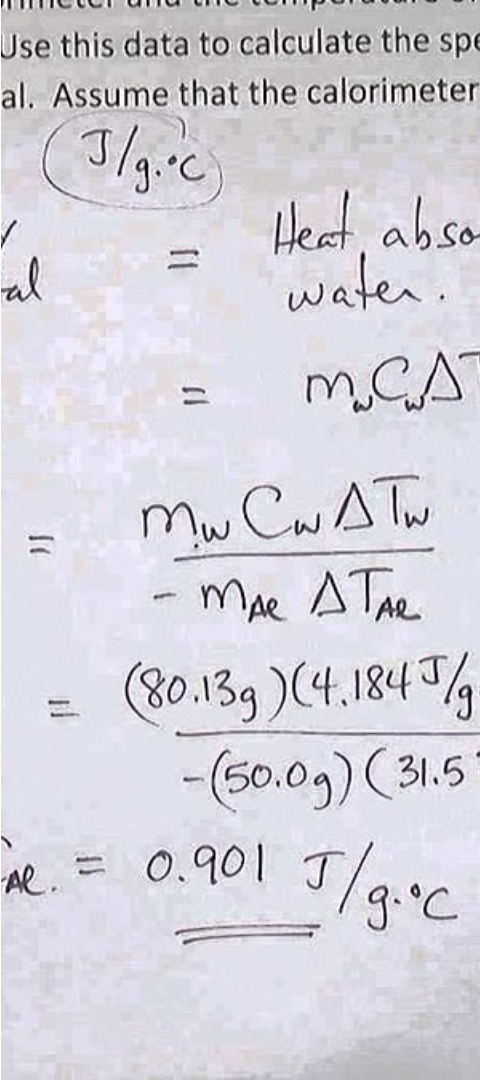 Use this data to calculate the spe
al. Assume that the calorimeter
J/g.°C
al = Heat abso
water.
= mwCwΔT
= mw Cw ΔTw
- mAl ΔTAl
= (80.13g)(4.184 J/g
-(50.0g)(31.5
Al. = 0.901 J/g.°C